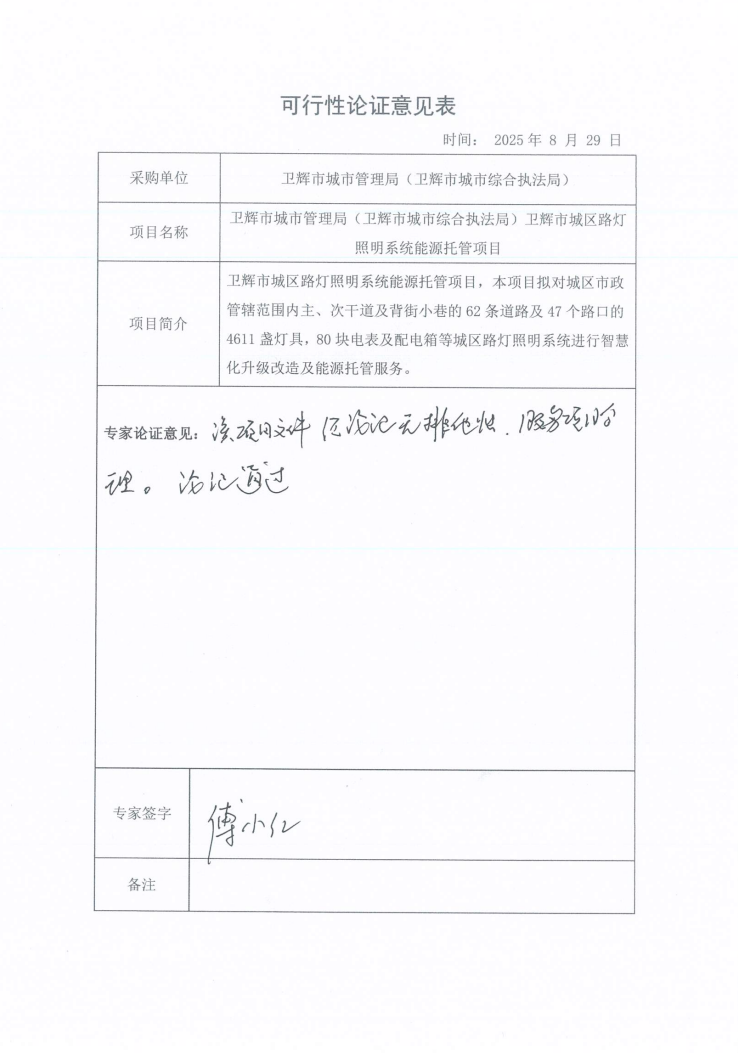 可行性论证意见表
时间： 2025 年 8 月 29 日
采购单位
卫辉市城市管理局（卫辉市城市综合执法局）
项目名称
卫辉市城市管理局（卫辉市城市综合执法局）卫辉市城区路灯
照明系统能源托管项目
项目简介
卫辉市城区路灯照明系统能源托管项目，本项目拟对城区市政
管辖范围内主、次干道及背街小巷的 62 条道路及 47 个路口的
4611 盏灯具，80 块电表及配电箱等城区路灯照明系统进行智慧
化升级改造及能源托管服务。
专家论证意见：该项目文件经论证无排他性．服务项目合
理。论证通过
专家签字
傅小红
备注